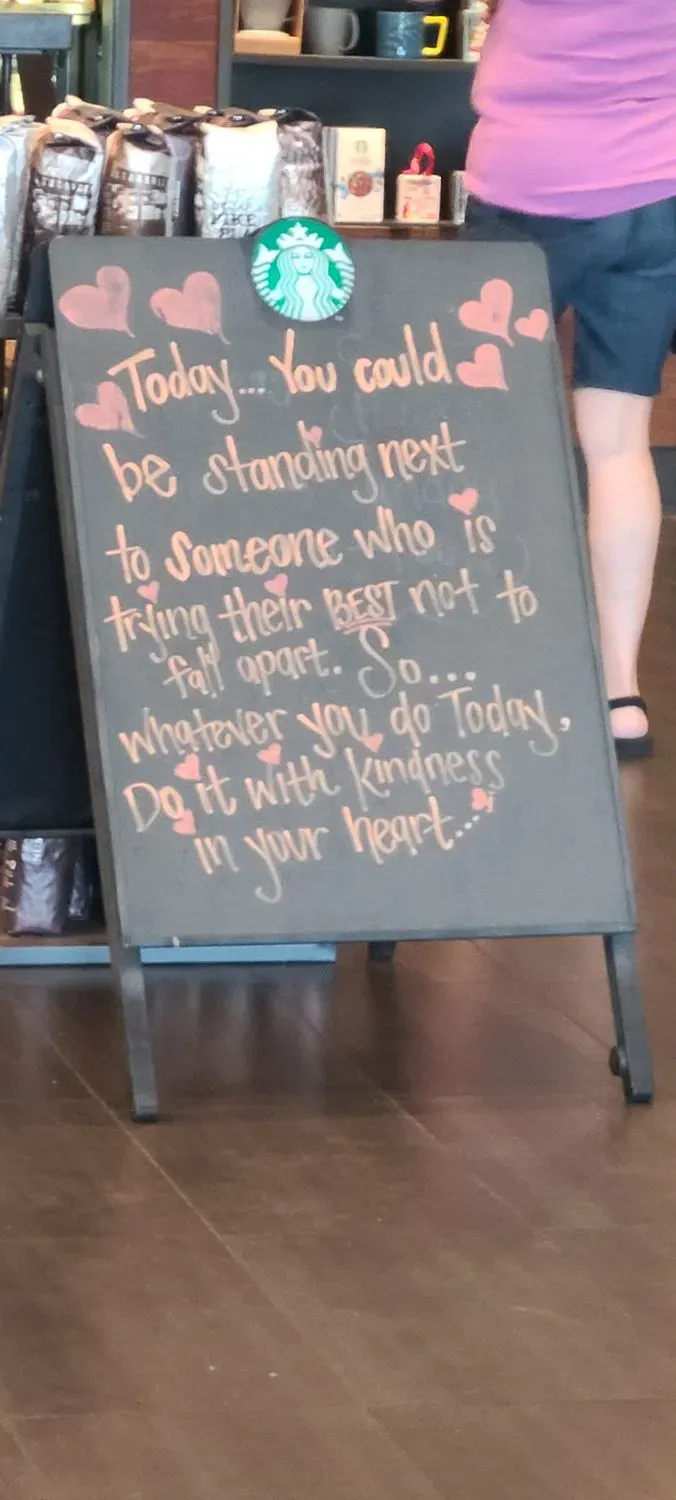 Today... You could
be standing next
to someone who is
trying their BEST not to
fall apart. So...
whatever you do Today,
Do it with kindness
in your heart...
PIKE